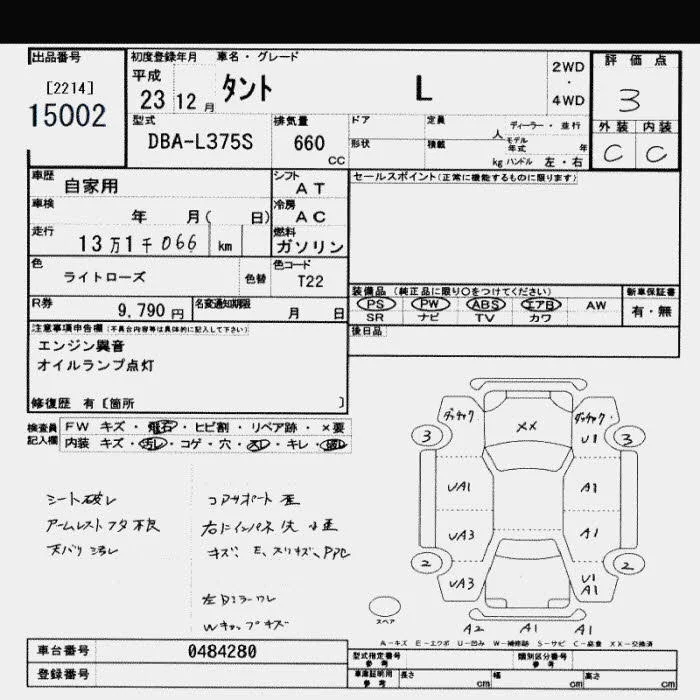 出品番号
[2214]
15002
初度登録年月 車名・グレード
平成
23 12月 タント L
2WD
・
4WD
評価点
3
外装 内装
C C
型式
DBA-L375S
排気量
660
CC
ドア 定員 人 ディーラー・並行
形状 積載 kg モデル年式 年
ハンドル 左・右
車歴 自家用
シフト AT
車検 年 月( 日)
冷房 AC
走行 13万1千066 km
燃料 ガソリン
色 ライトローズ 色替
色コード T22
R券 9,790円 名変通知期限 月 日
セールスポイント(正常に機能するものに限ります)
装備品 (純正品に限り〇をつけてください) 新車保証書
PS PW ABS エアB AW 有・無
SR ナビ TV カワ
後日品
注意事項申告欄(不具合内容等は具体的に記入して下さい)
エンジン異音
オイルランプ点灯
修復歴 有〔箇所 〕
検査員記入欄
FW キズ・飛石・ヒビ割・リペア跡・×要
内装 キズ・汚レ・コゲ・穴・スレ・キレ・破レ
シート破レ
アームレストフタ不良
天バリ汚レ
コアサポート歪
キズ、E、スリキズ、PPC
左Dミラーワレ
Wキャップキズ
ダッチャク
ダッチャク
U1
3
3
XX
UA1
A1
UA3
A1
2
2
UA3
U1
A1
スペア
A2 A1 A1
A-キズ E-エクボ U-凹み W-補修跡 S-サビ C-腐食 XX-交換済
車台番号 0484280
登録番号
型式指定番号 参考
類別区分番号 参考
車庫証明用 参考 長さ cm 幅 cm 高さ cm